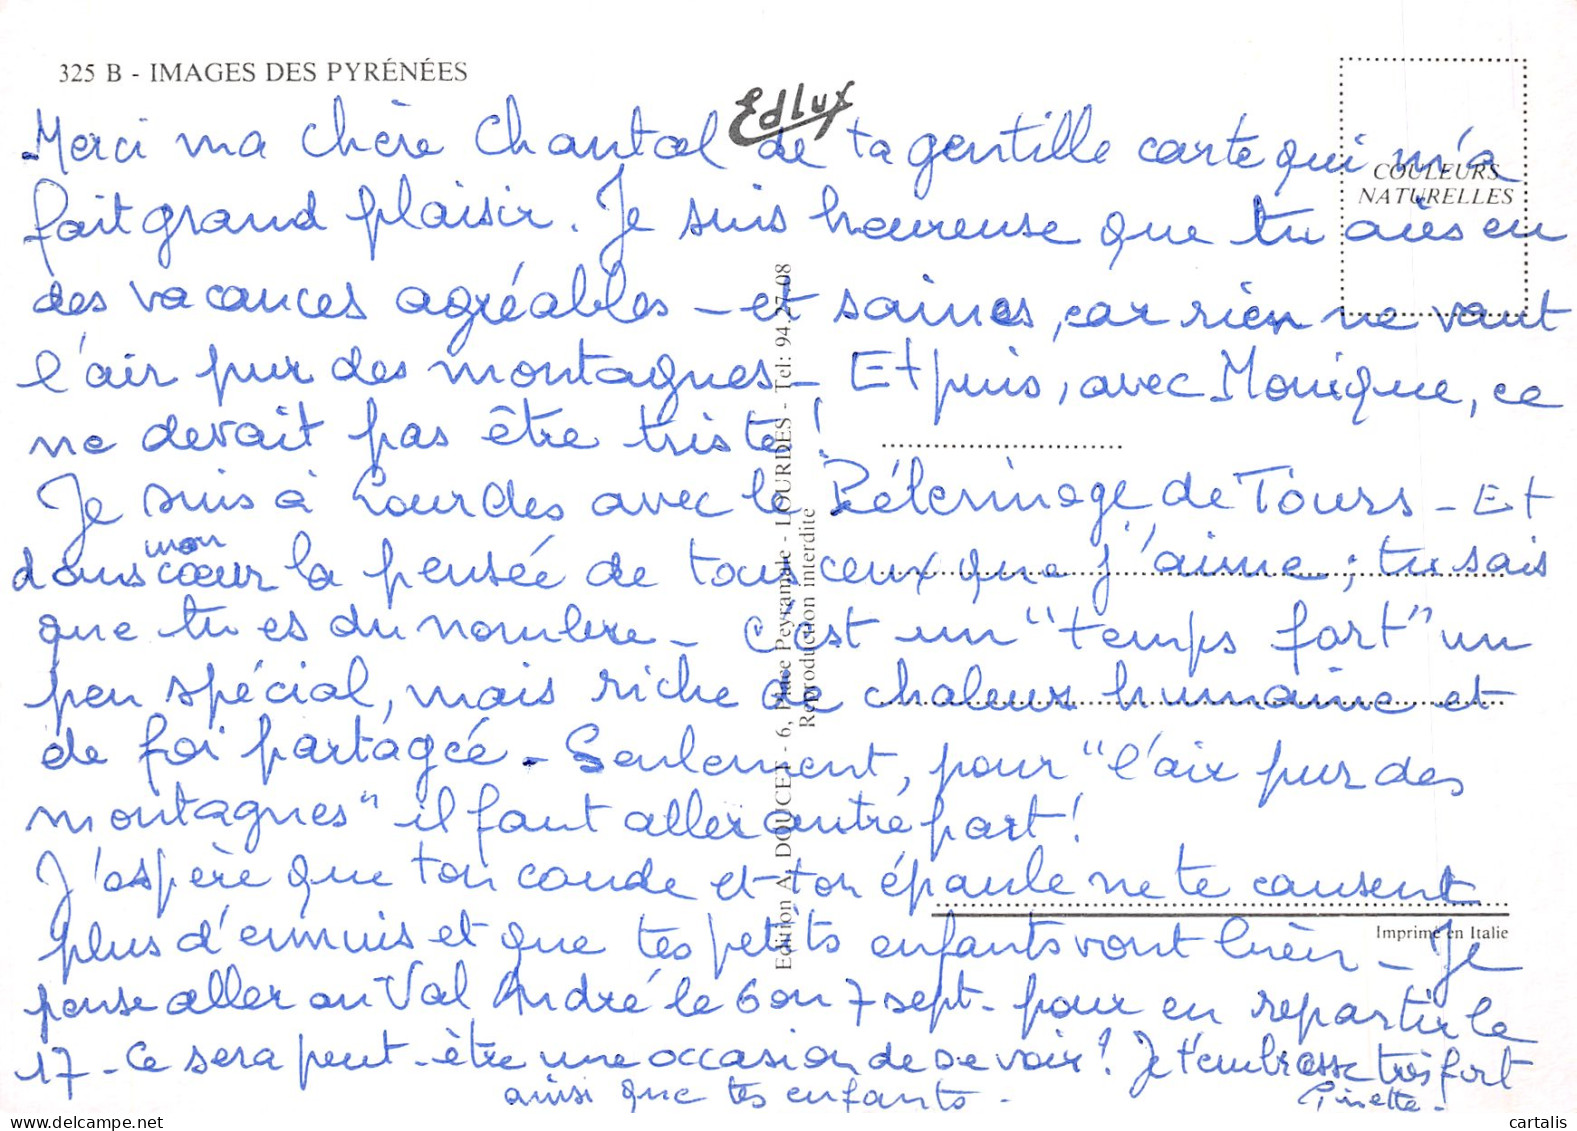 325 B - IMAGES DES PYRÉNÉES
Edlux
COULEURS
NATURELLES
Merci ma chère Chantal de ta gentille carte qui m'a
fait grand plaisir. Je suis heureuse que tu aies eu
des vacances agréables - et saines, car rien ne vaut
l'air pur des montagnes - Et puis, avec Monique, ce
ne devait pas être triste !
Je suis à Lourdes avec le Pélerinage de Tours - Et
dans mon coeur la pensée de tous ceux que j'aime ; tu sais
que tu es du nombre - C'est un "temps fort" un
peu spécial, mais riche de chaleur humaine et
de foi partagée - Seulement, pour "l'air pur des
montagnes" il faut aller autre part !
J'espère que ton coude et ton épaule ne te causent
plus d'ennuis et que tes petits enfants vont bien - Je
pense aller au Val André le 6 ou 7 sept - pour en repartir le
17 - Ce sera peut-être une occasion de se voir ! Je t'embrasse très fort
ainsi que tes enfants -
Ginette -
Edition A. DOUCET - 6, Place Peyramale - LOURDES - Tel: 94.27.08
Reproduction interdite
Imprimé en Italie
cartalis